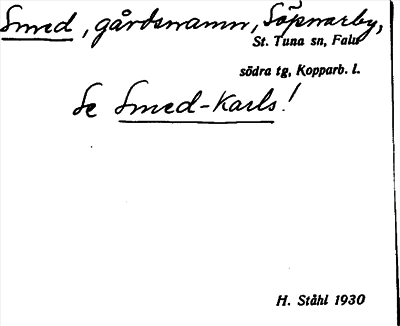 Smed, gårdsnamn, Söpnarby,
St. Tuna sn, Falu
södra tg, Kopparb. l.
Se Smed-Karls!
H. Ståhl 1930